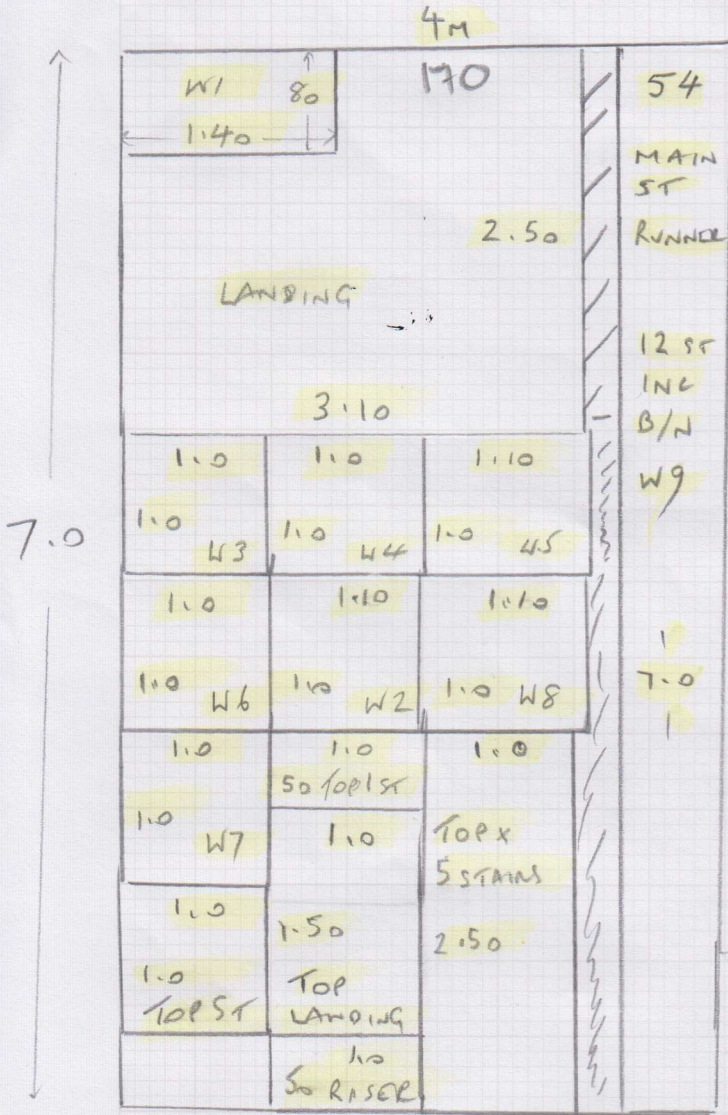 4M
W1 80
1.40
170
54
MAIN
ST
RUNNER
2.50
LANDING
12 ST
INC
B/N
W9
3.10
7.0
1.0 1.0 1.10
1.0 W3 1.0 W4 1.0 W5
1.0 1.10 1.10
1.0 W6 1.0 W2 1.0 W8
7.0
1.0 1.0 1.0
50 TOP 1ST
1.0 W7
1.0
TOP X
5 STAIRS
2.50
1.0
1.0
TOP ST
1.50
TOP
LANDING
1.0
50 RISER